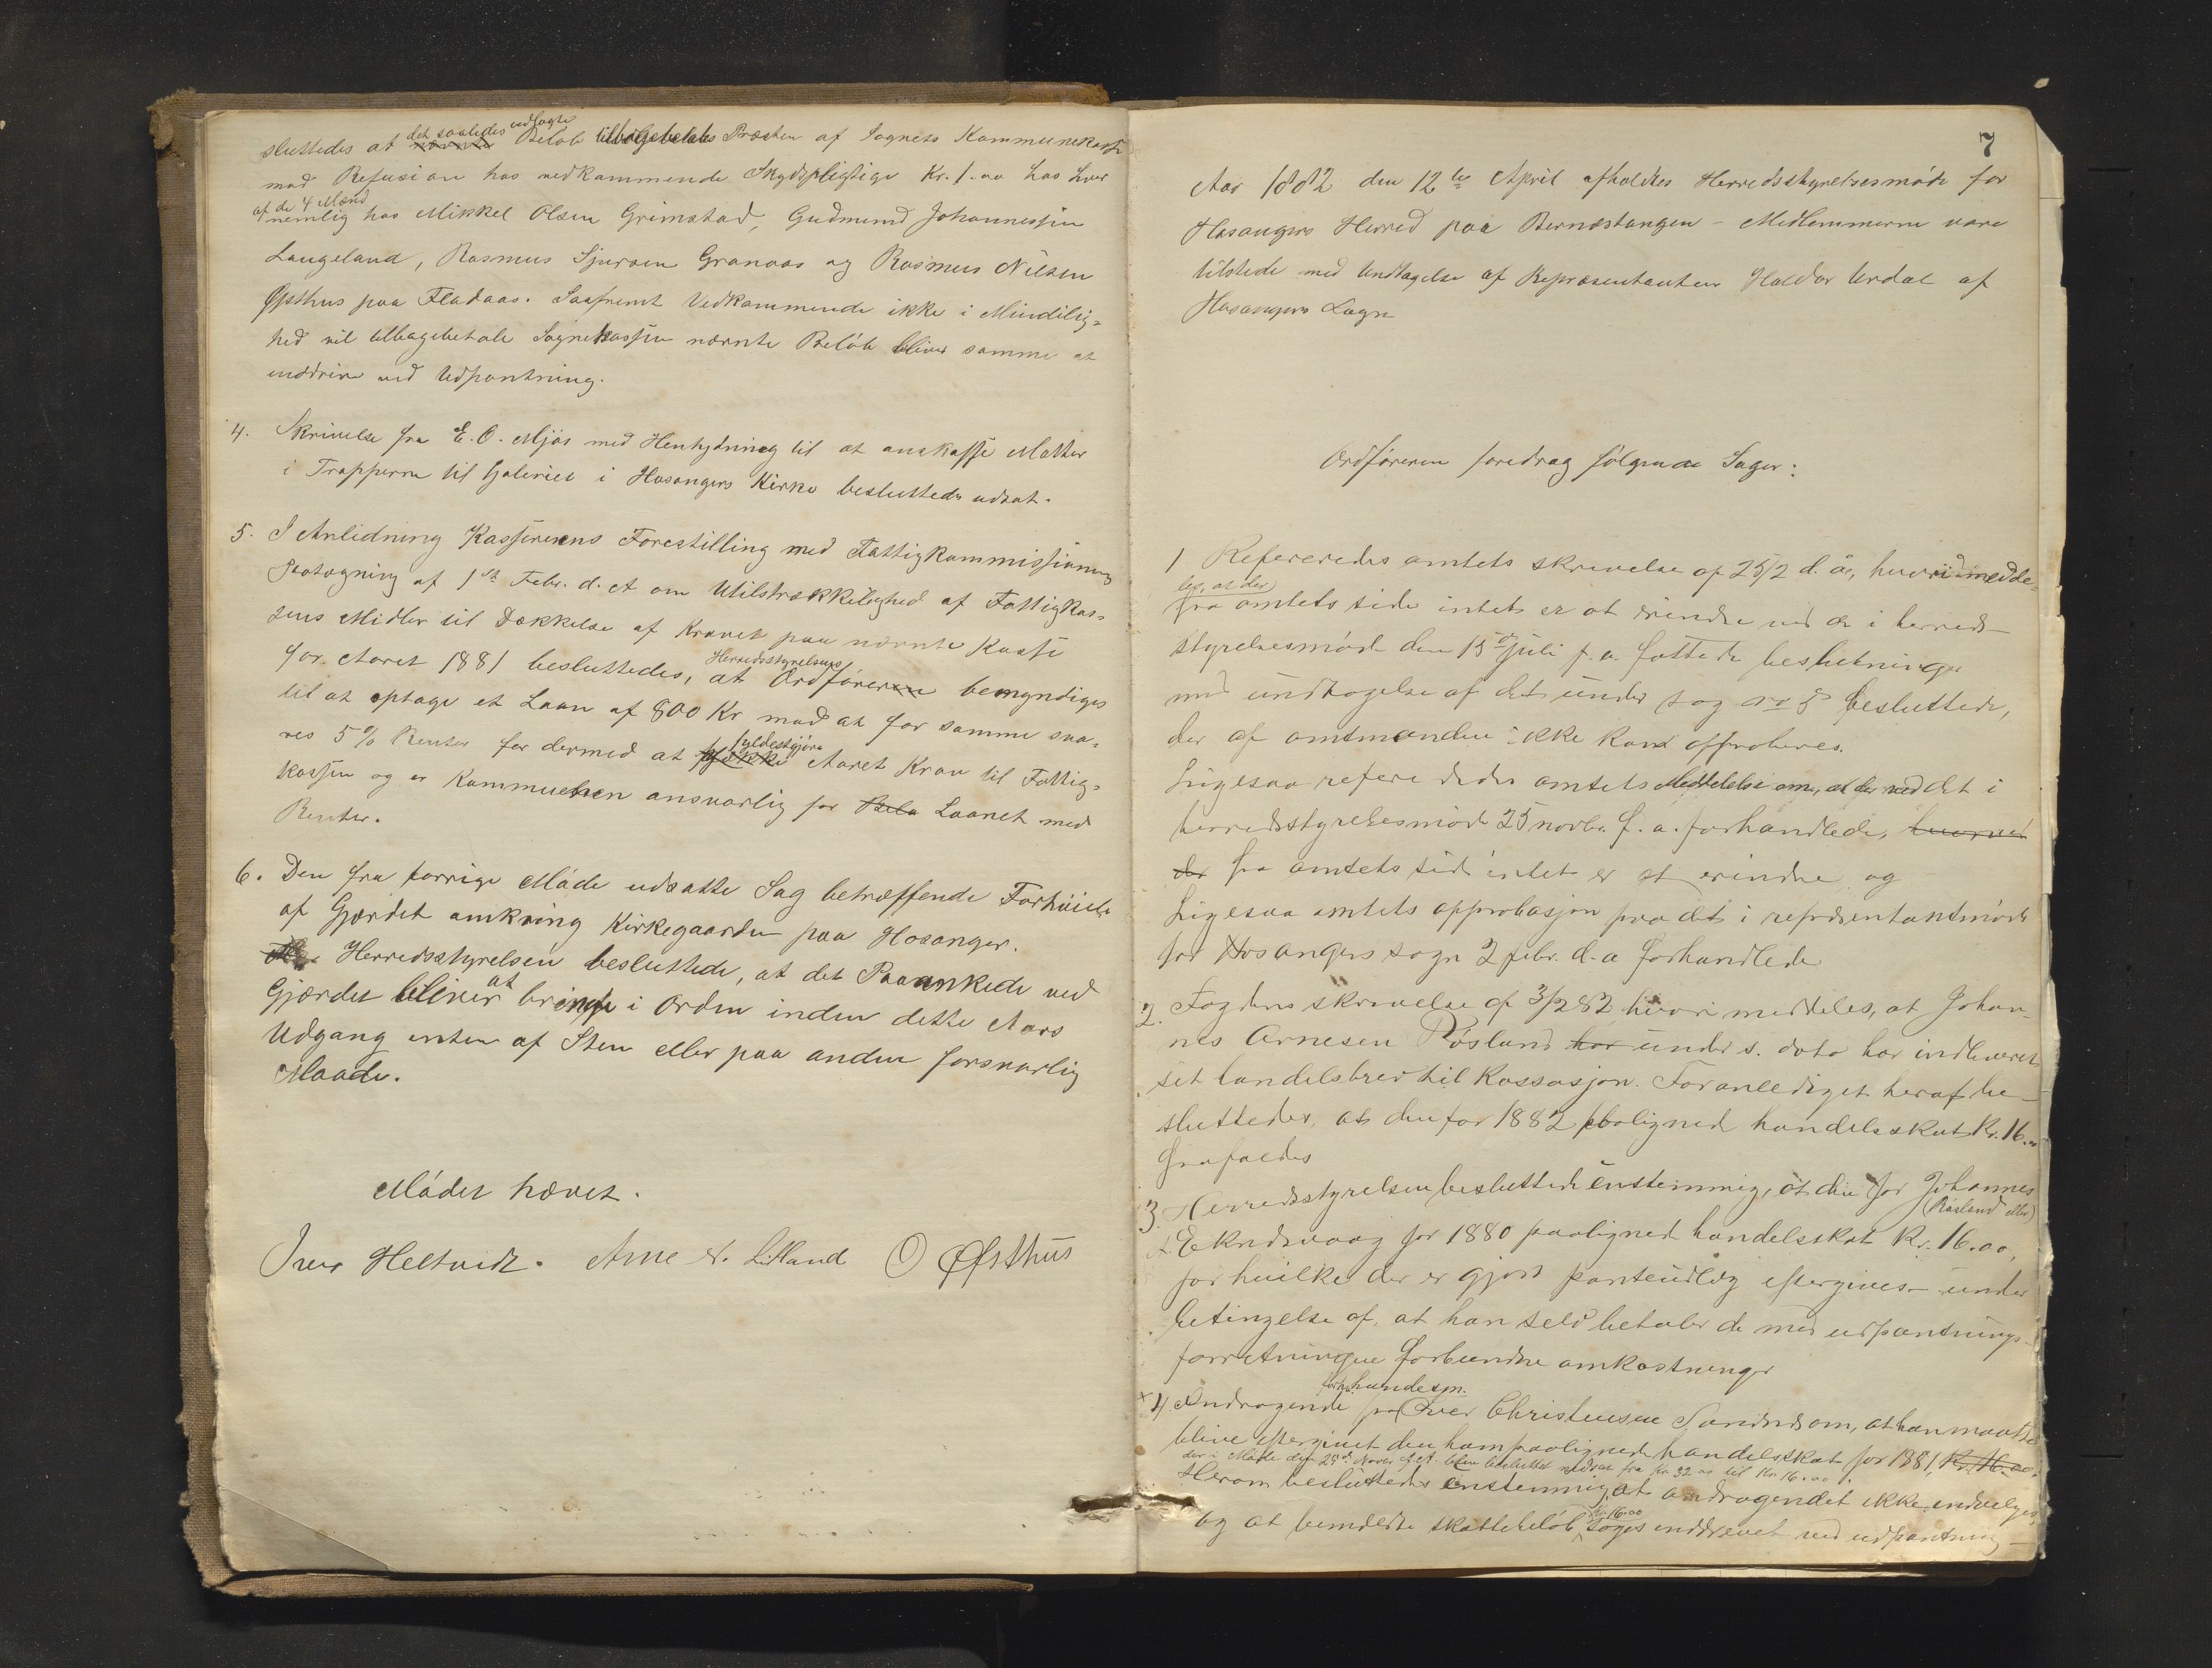 sluttedes at det saaledes udlagte Beløb tilbagebetales Præsten af Sognets Kommunekasse
mod Refusion hos vedkommende Skydspligtige Kr. 1.00 hos hver
af de 4 Mænd
nemlig hos Mikkel Olsen Grimstad, Gudmund Johannessen
Langeland, Rasmus Sjursen Granaas og Rasmus Nilsen
Øfsthus paa Fladaas. Saafremt Vedkommende ikke i Mindelig-
hed vil tilbagebetale Sognekassen nævnte Beløb bliver samme at
inddrive ved Udpantning.
4. Skrivelse fra E. O. Mjøs med Henhydning til at anskaffe Matter
i Trapperne til Galeriet i Hosangers Kirke besluttedes udsat.
5. I Anledning Kassererens Forestilling med Fattigkommissionens
Paategning af 1ste Febr. d. A om Utilstrækkelighed af Fattigkas-
sens Midler til Dækkelse af Kravet paa nævnte Kasse
for Aaret 1881 besluttedes, at Herredsstyrelsens Ordfører bemyndiges
til at optage et Laan af 800 Kr mod at for samme sva-
res 5 % Renter for dermed at fyldestgjøre Aaret Krav til Fattig-
kassen og er Kommunen ansvarlig for Belø Laanet med
Renter.
6. Den fra forrige Møde udsatte Sag betræffende Forhøielse
af Gjærdet omkring Kirkegaarden paa Hosanger.
Herredsstyrelsen besluttede, at det Paaankede ved
Gjærdet bliver at bringe i Orden inden dette Aars
Udgang enten af Sten eller paa anden forsvarlig
Maade.
Mødet hævet.
Iver Heltvedt. Arne N. Litland O Øfsthus
7
Aar 1882 den 12te April afholdtes Herredsstyrelsesmøde for
Hosangers Herred paa Bernæstangen - Medlemmerne vare
tilstede med Undtagelse af Repræsentanten Haldor Urdal af
Hosangers Sogn
Ordføreren foredrag følgende Sager:
1 Refereredes amtets skrivelse af 25/2 d. å., hvori medde-
les, at der
fra amtets side intet er at erindre ved de i herreds-
styrelsesmøde den 15de Juli f. a. fattede beslutninger
med undtagelse af det under sag no 5 besluttede,
der af amtmanden ikke kan approberes.
Ligesaa refereredes amtets Meddelelse om, at der ved det i
herredsstyrelsesmøde 25 novbr. f. a. forhandlede, hvorved
der fra amtets side intet er at erindre og
Ligesaa amtets approbasjon paa det i repræsentantmøde
for Hosangers sogn 2 febr. d. a forhandlede
2. Fogdens skrivelse af 3/2 82 hvori meddeles, at Johan-
nes Arnesen Røsland har under s. dato har indleveret
sit handelsbrev til Kassasjon. Foranlediget heraf be-
sluttedes, at den for 1882 paalignede handelsskat Kr. 16.00
frafaldes
3. Herredsstyrelsen besluttede enstemmig, at den for Johannes
(Røsland eller)
A. Eknæsvaag for 1880 paalignede handelsskat Kr. 16.00,
for hvilke der er gjort panteudlæg eftergives under
betingelse af, at han selv betaler de med udpantnings-
forretningen forbundne omkostninger
4 Andragende fra forh. handelsm. Iver Christensen Sundnds om, at han maatte
blive eftergivet den ham paalignede handelsskat for 1881, Kr. 16.00.
der i Møde den 25de Novbr. f. A. blev besluttet nedsat fra Kr. 32.00 til Kr. 16.00.
Herom besluttedes enstemmig, at andragendet ikke indvilges,
og at bemeldte skattebeløb Kr. 16.00 søges inddrevet ved udpantning